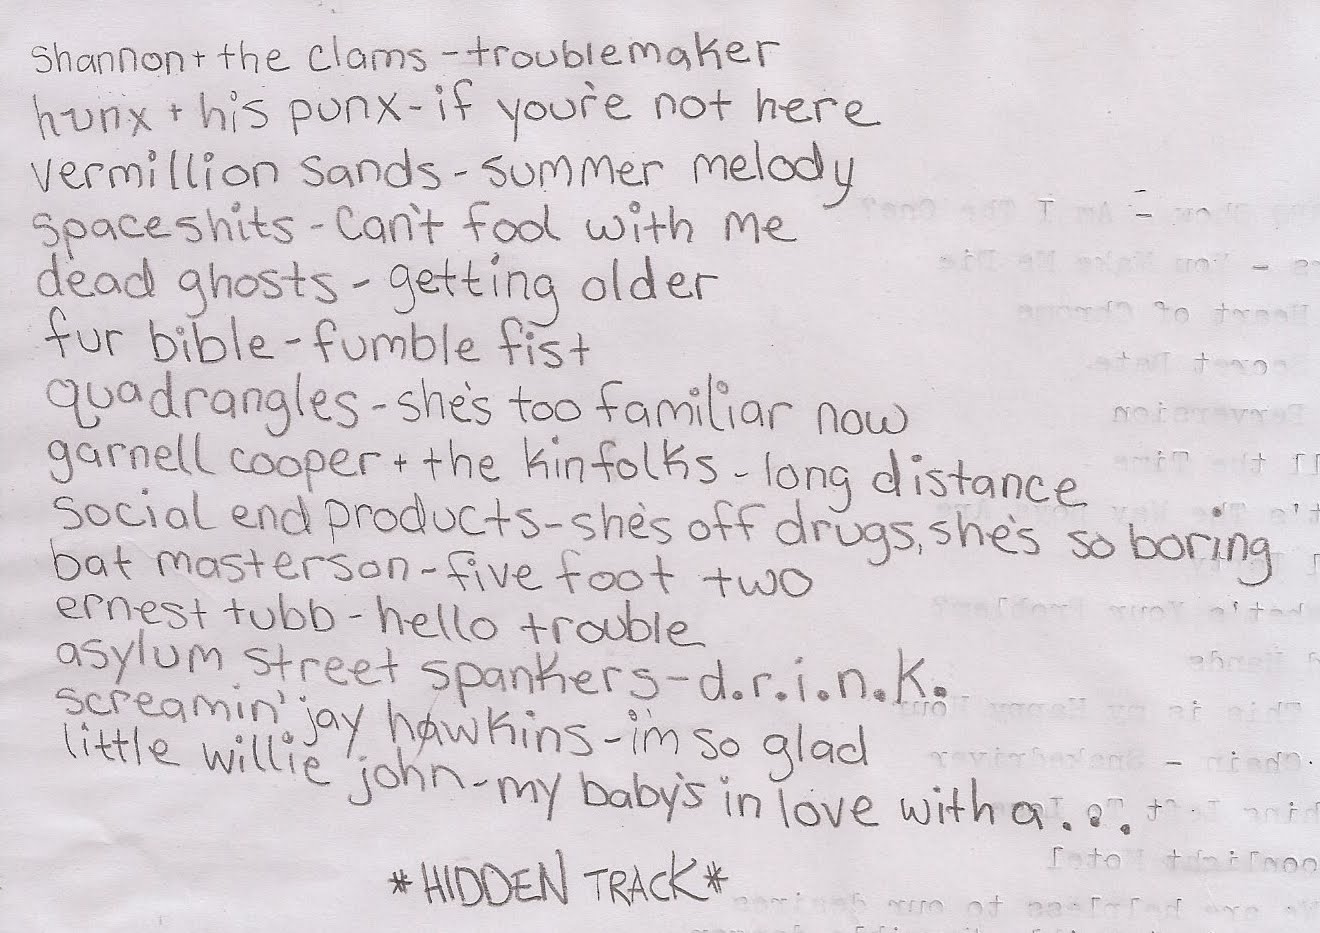 shannon + the clams - troublemaker
hunx + his punx - if you're not here
vermillion sands - summer melody
spaceshits - can't fool with me
dead ghosts - getting older
fur bible - fumble fist
quadrangles - she's too familiar now
garnell cooper + the kinfolks - long distance
social end products - she's off drugs, she's so boring
bat masterson - five foot two
ernest tubb - hello trouble
asylum street spankers - d.r.i.n.k.
screamin' jay hawkins - i'm so glad
little willie john - my baby's in love with a...
*HIDDEN TRACK*